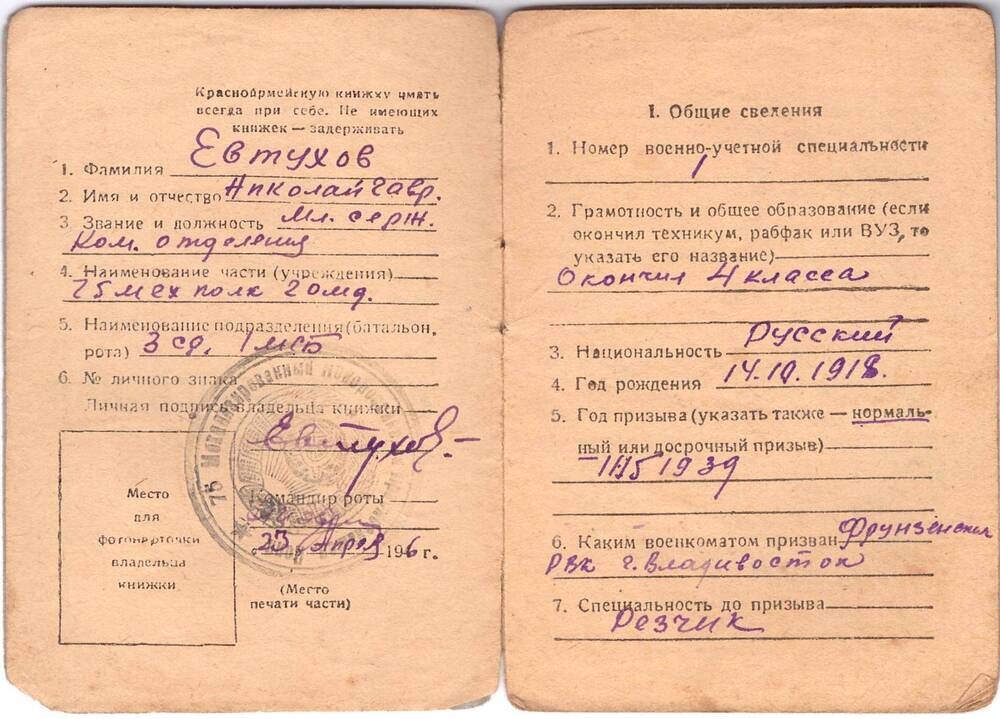 Красноармейскую книжку иметь
всегда при себе. Не имеющих
книжек — задерживать
1. Фамилия Евтухов
2. Имя и отчество Николай Гавр.
3 Звание и должность Мл. серж.
Ком. отделения
4. Наименование части (учреждения)
мех полк
5. Наименование подразделения (батальон,
рота) 3 ср, 1 мсб
6. № личного знака
Личная подпись владельца книжки
Евтухов
Командир роты
23 Апреля 1946 г.
(Место
печати части)
Место
для
фотокарточки
владельца
книжки
76 Механизированный
I. Общие сведения
1. Номер военно-учетной специальности
1
2. Грамотность и общее образование (если
окончил техникум, рабфак или ВУЗ, то
указать его название)
Окончил 4 класса
3. Национальность Русский
4. Год рождения 1918.
5. Год призыва (указать также — нормаль-
ный или досрочный призыв)
1939
6. Каким военкоматом призван Фрунзенским
РВК г. Владивосток
7. Специальность до призыва
Резчик